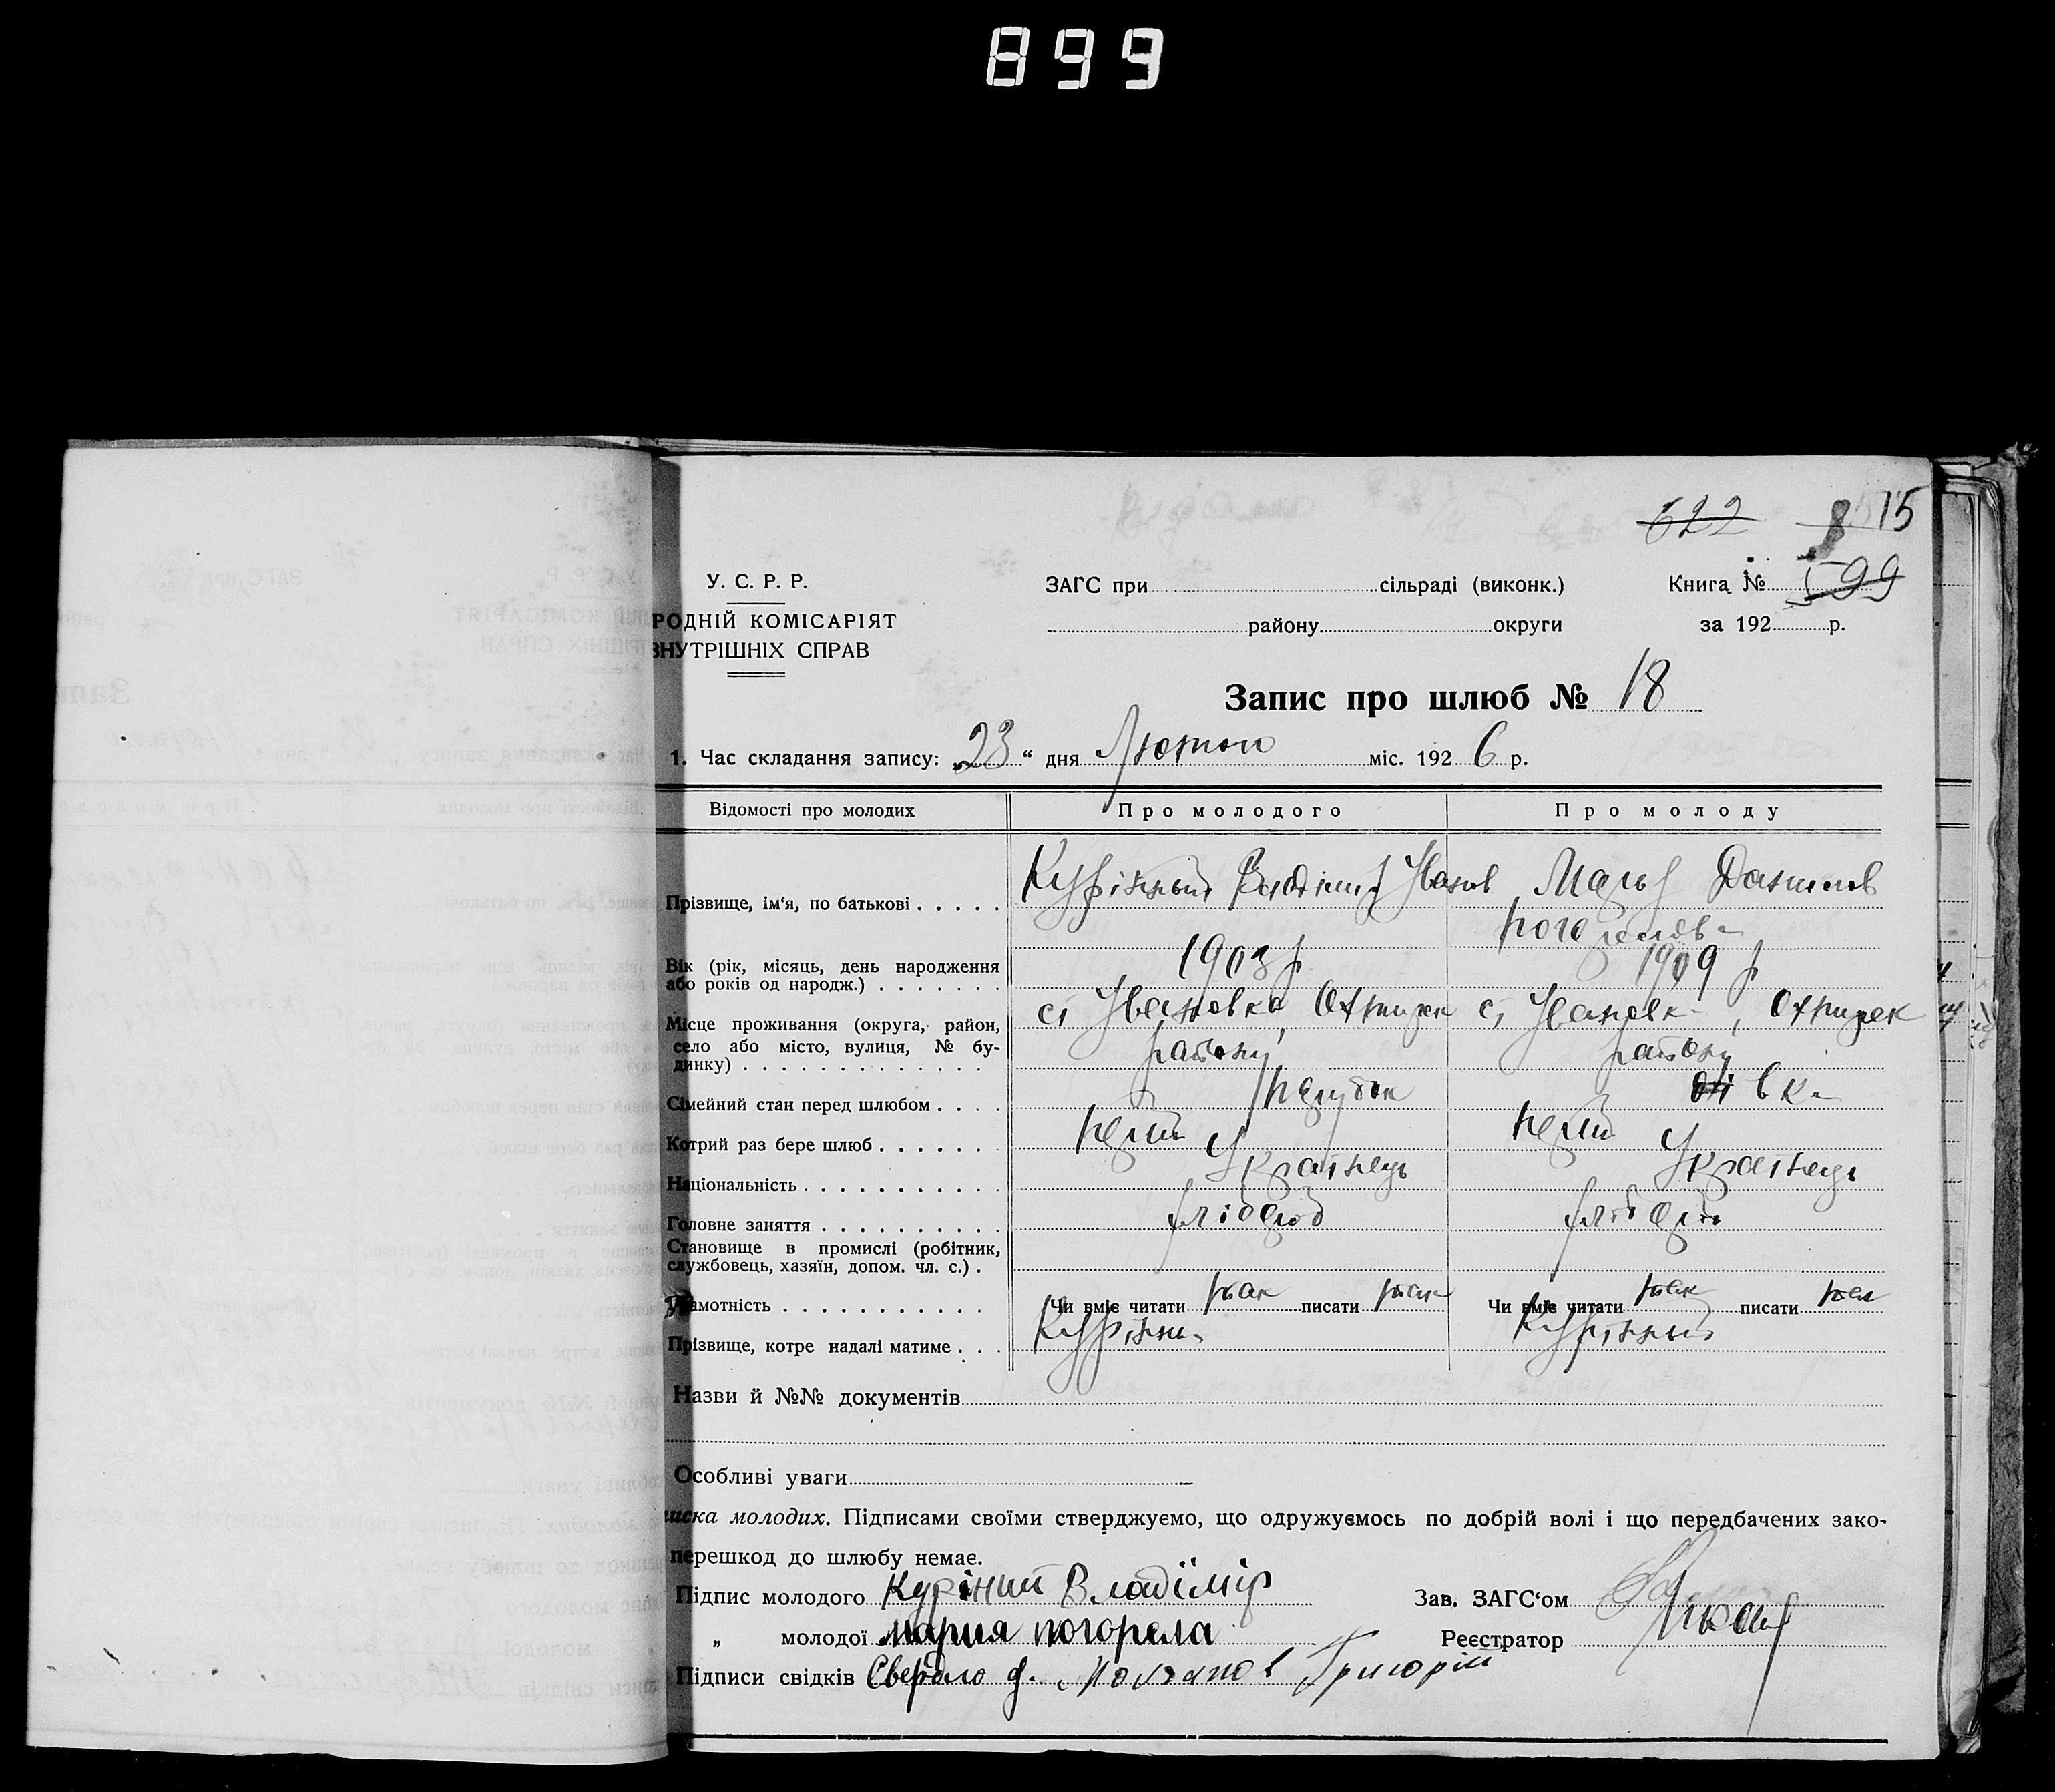 899
622 8 15
У. С. Р. Р. ЗАГС при сільраді (виконк.) Книга № 599
РОДНІЙ КОМІСАРІЯТ району округи за 192 р.
ВНУТРІШНІХ СПРАВ
Запис про шлюб № 18
1. Час складання запису: „23“ дня Лютого міс. 1926 р.
Відомості про молодих Про молодого Про молоду
Прізвище, ім‘я, по батькові Курінный Владімир Іванов Марья Данилов
Погорелова
Вік (рік, місяць, день народження 1903 р 1909 р
або років од народж.)
Місце проживання (округа, район, с. Ивановка Охтирск с. Ивановка, Охтирск
село або місто, вулиця, № бу- району району
динку)
Сімейний стан перед шлюбом парубок дівка
Котрий раз бере шлюб перш перш
Національність Українець Українець
Головне заняття хлібороб хлібороб
Становище в промислі (робітник,
службовець, хазяїн, допом. чл. с.)
Грамотність Чи вміє читати так писати так Чи вміє читати так писати так
Прізвище, котре надалі матиме Курінны Курінный
Назви й №№ документів
Особливі уваги
иска молодих. Підписами своїми стверджуємо, що одружуємось по добрій волі і що передбачених зако-
перешкод до шлюбу немає.
Підпис молодого Курінний Владімір Зав. ЗАГС‘ом
„ молодої Мария Погорела Реєстратор
Підписи свідків Свердло Григорій